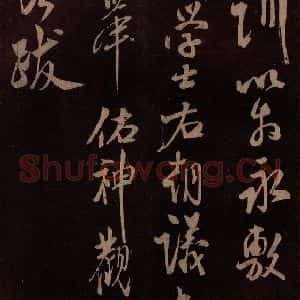 訓以永敷
学士右朝議
佑神觀
跋
Shufawang.Cn